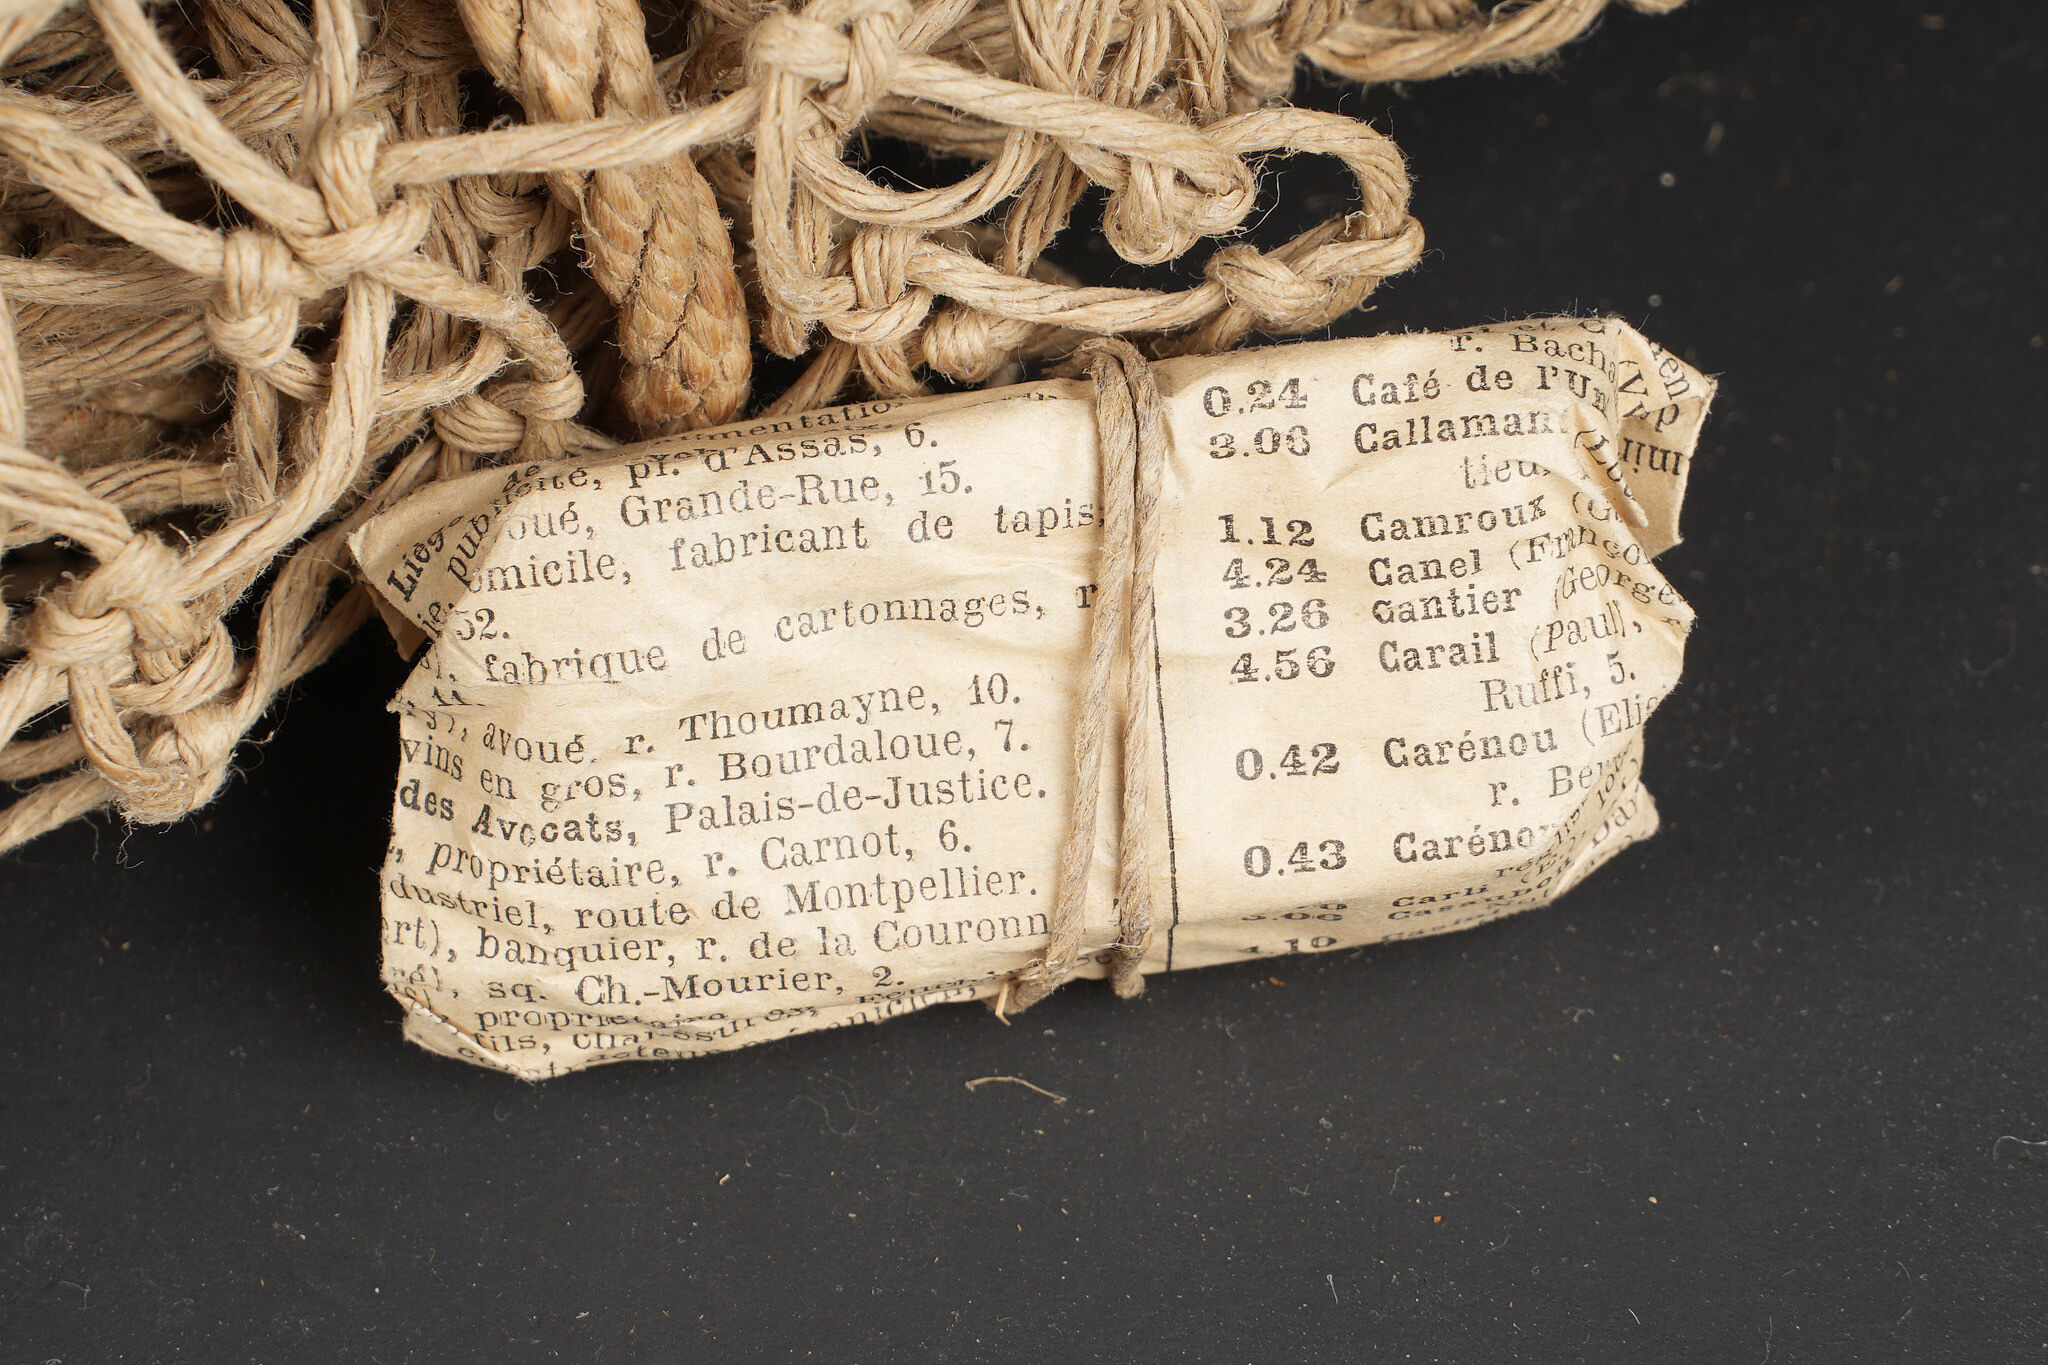 publicité, pl. d'Assas, 6.
oué, Grande-Rue, 15.
omicile, fabricant de tapis,
52.
fabrique de cartonnages, r
avoué, r. Thoumayne, 10.
vins en gros, r. Bourdaloue, 7.
des Avocats, Palais-de-Justice.
propriétaire, r. Carnot, 6.
dustriel, route de Montpellier.
ert), banquier, r. de la Couronn
sq. Ch.-Mourier, 2.
propriétaire
fils,
r. Bach
0.24 Café de l'Un
3.06 Callamant
tieur
1.12 Camroux (G
4.24 Canel (Franço
3.26 Cantier (George
4.56 Carail (Paul),
Ruffi, 5.
0.42 Carénou (Elie
r. Ber
0.43 Caréno
3.06 Casano